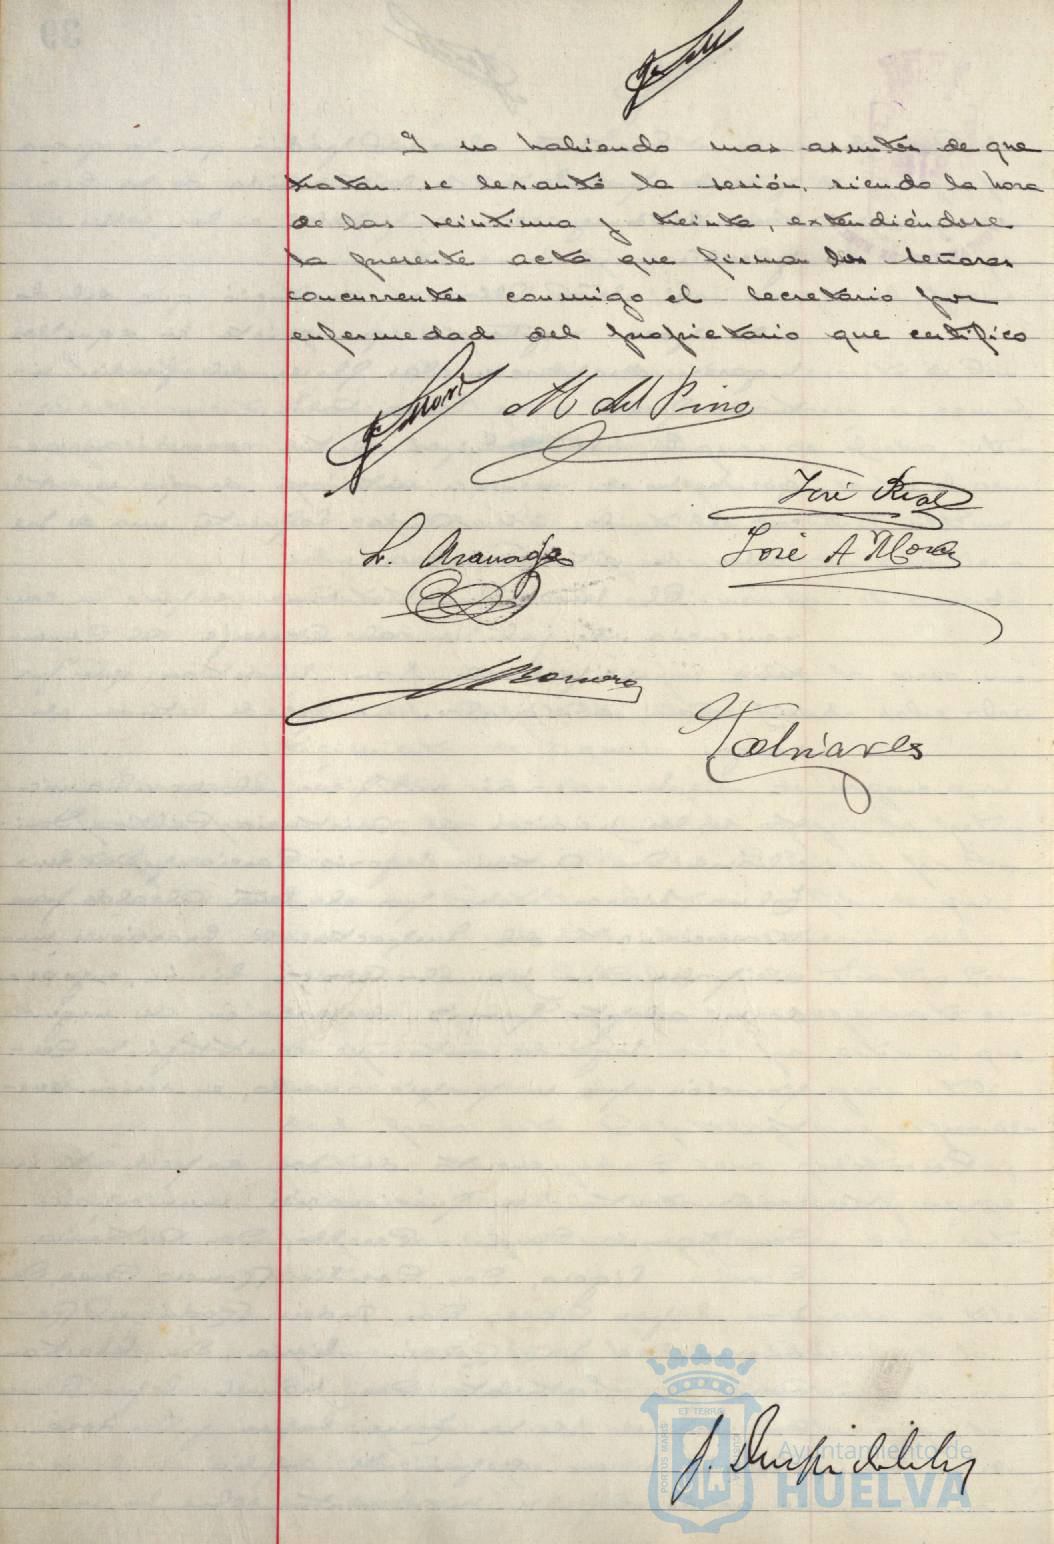 Y no habiendo mas asuntos de que
tratar se levantó la sesión, siendo la hora
de las veintiuna y treinta, extendiéndose
la presente acta que firman los señores
concurrentes conmigo el Secretario por
enfermedad del propietario que certifico
M del Pino
José Real
L. Aranaga
José A Mora
Romero
ET TERRAE
PORTUS MARIS
Ayuntamiento de
HUELVA